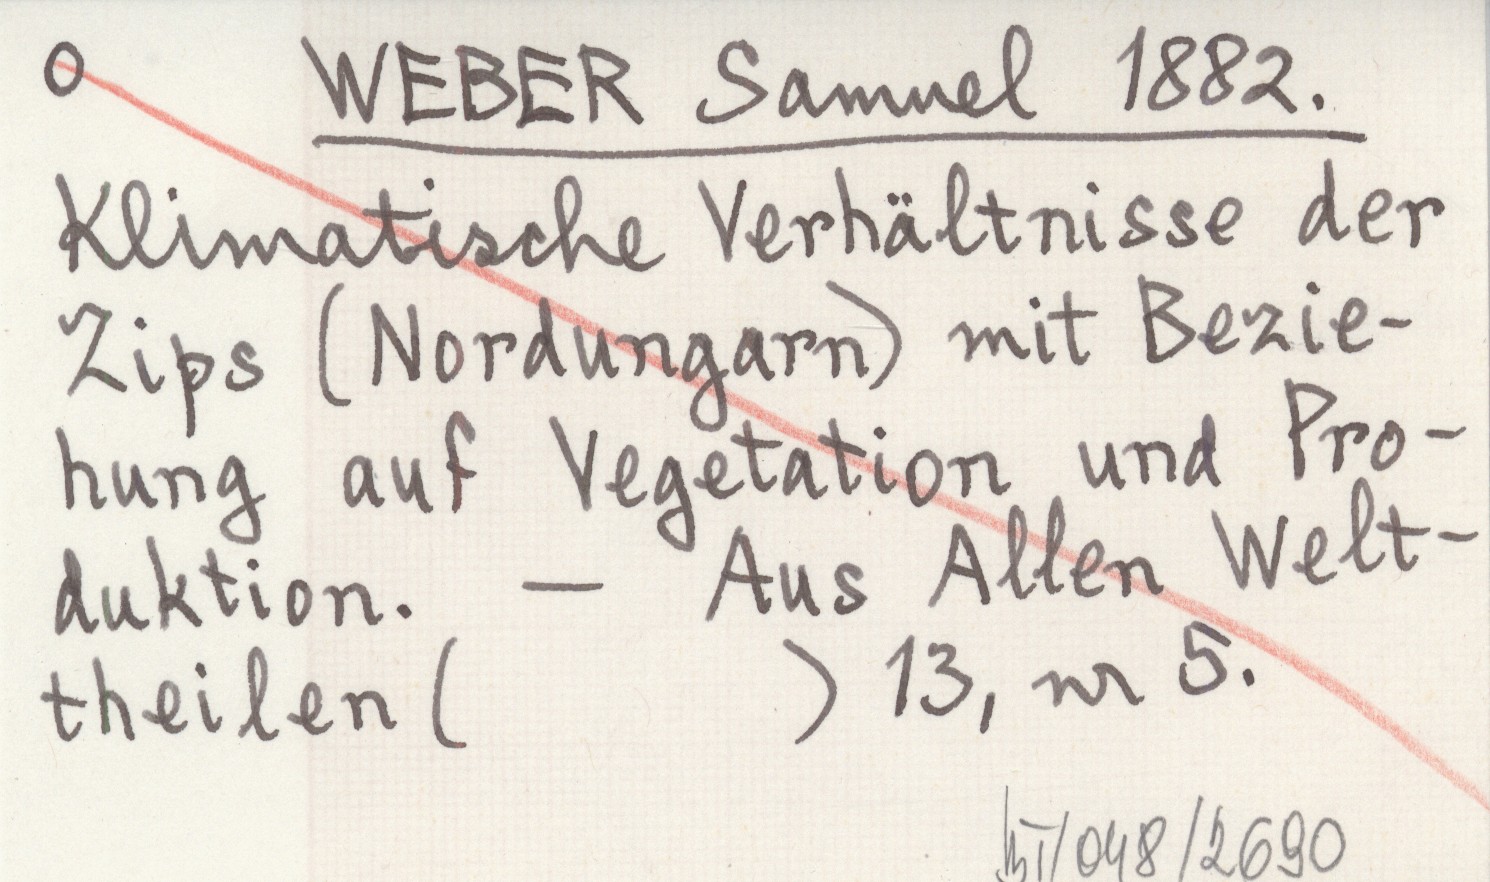 O WEBER Samuel 1882.
Klimatische Verhältnisse der
Zips (Nordungarn) mit Bezie-
hung auf Vegetation und Pro-
duktion. — Aus Allen Welt-
theilen ( ) 13, nr 5.
/048/2690